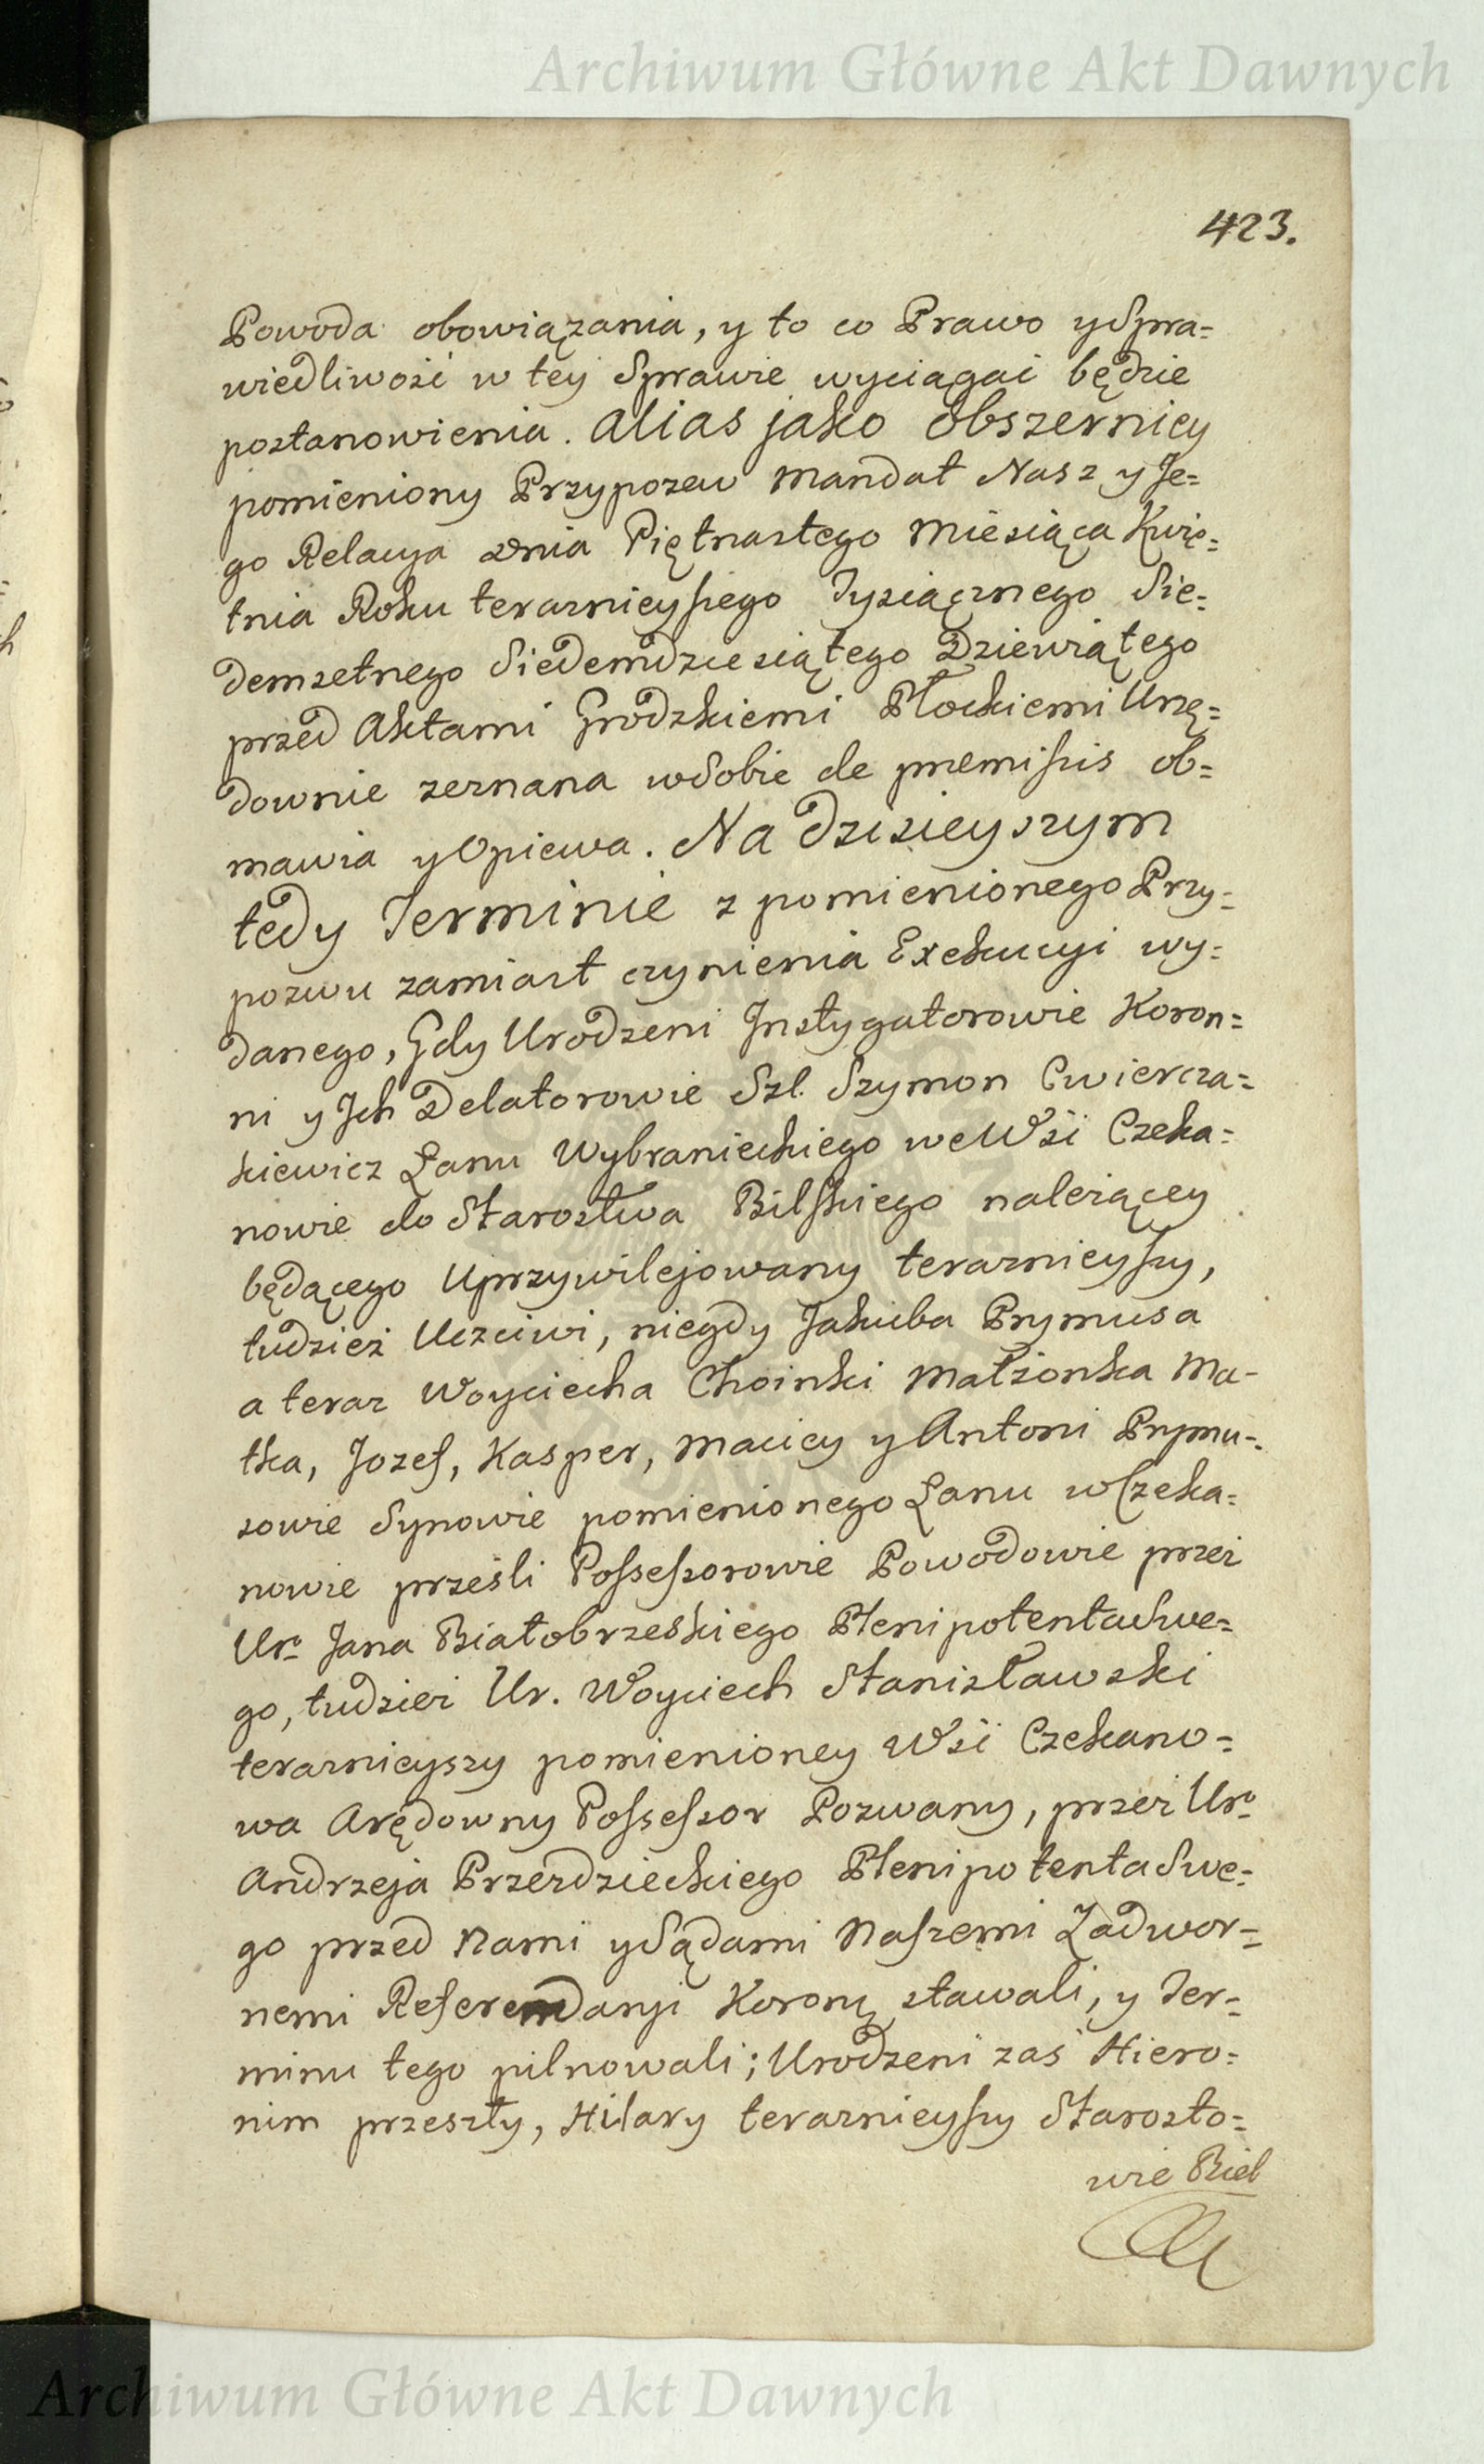 Archiwum Główne Akt Dawnych
423.
Powoda obowiązania, y to co Prawo y Spra=
wiedliwość w tey Sprawie wyciągać będzie
postanowienia. Alias jako obszerniey
pomieniony Przypozew Mandat Nasz y Je=
go Relacya dnia Piętnastego Miesiąca Kwie=
tnia Roku teraznieyszego Tysiącznego Sie=
demsetnego Siedemdziesiątego Dziewiątego
przed Aktami Grodzkiemi Płockiemi Urzę=
downie zeznana w Sobie de premissis ob=
mawia y Opiewa. Na dzisieyszym
tedy Terminie z pomienionego Przy=
pozwu zamiast czynienia Exekucyi wy=
danego, Gdy Urodzeni Instygatorowie Koron=
ni y Ich Delatorowie Szl. Szymon Cwiercza=
kiewicz Łanu Wybranieckiego we Wsi Czeka=
nowie do Starostwa Bilskiego należącey
będącego Uprzywilejowany teraznieyszy,
tudzież Uczciwi, niegdy Jakuba Prymusa
a teraz Woyciecha Choinki Małżonka Ma-
tka, Jozef, Kasper, Maciey y Antoni Prymu=
sowie Synowie pomienionego Łanu w Czeka=
nowie prześli Possessorowie Powodowie przez
Ur. Jana Białobrzeskiego Plenipotenta Swe=
go, tudzież Ur. Woyciech Stanisławski
teraznieyszy pomienioney Wsi Czekano=
wa Arędowny Possessor Pozwany, przez Ur.
Andrzeja Przezdzieckiego Plenipotenta Swe=
go przed Nami y Sądami Naszemi Zadwor=
nemi Referendaryi Korony stawali, y Ter=
minu tego pilnowali; Urodzeni zaś Hiero=
nim przeszły, Hilary teraznieyszy Starosto=
wie Biel
Archiwum Główne Akt Dawnych